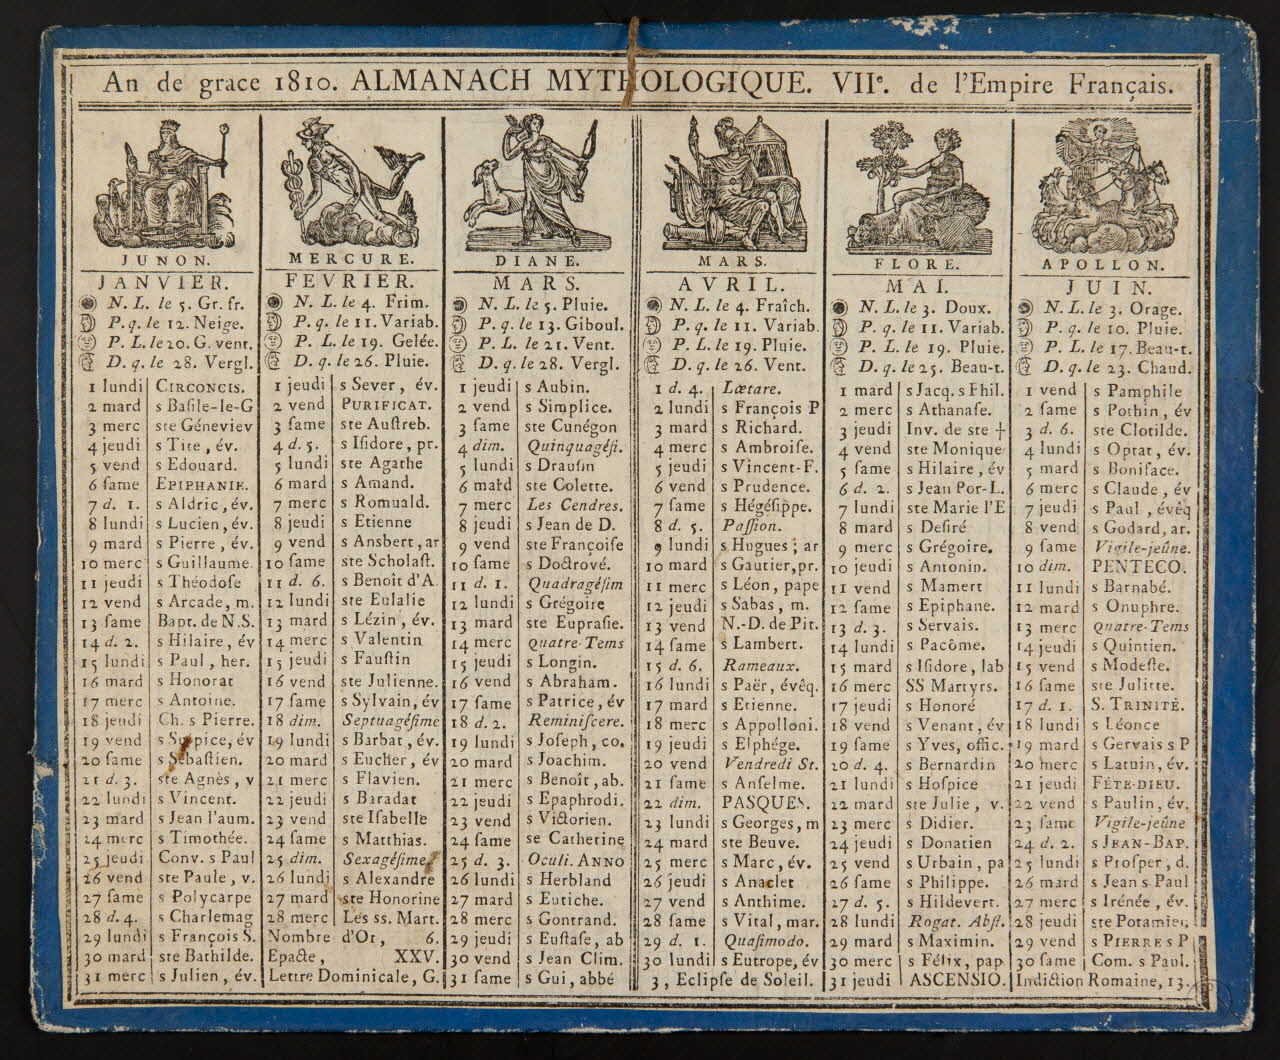 An de grace 1810. ALMANACH MYTHOLOGIQUE. VIIe. de l'Empire Français.
JUNON.
JANVIER.
N. L. le 5. Gr. fr.
P. q. le 12. Neige.
P. L. le 20. G. vent.
D. q. le 28. Vergl.
1 lundi CIRCONCIS.
2 mard s Baſile-le-G
3 merc ste Géneviev
4 jeudi s Tite, év.
5 vend s Edouard.
6 ſame EPIPHANIE.
7 d. 1. s Aldric, év.
8 lundi s Lucien, év.
9 mard s Pierre, év.
10 merc s Guillaume
11 jeudi s Théodoſe
12 vend s Arcade, m.
13 ſame Bapt. de N.S.
14 d. 2. s Hilaire, év
15 lundi s Paul, her.
16 mard s Honorat
17 merc s Antoine.
18 jeudi Ch. s Pierre.
19 vend s Sulpice, év
20 ſame s Sébaſtien.
21 d. 3. ste Agnès, v
22 lundi s Vincent.
23 mard s Jean l'aum.
24 merc s Timothée.
25 jeudi Conv. s Paul
26 vend ste Paule, v.
27 ſame s Polycarpe
28 d. 4. s Charlemag
29 lundi s François S.
30 mard ste Bathilde.
31 merc s Julien, év.
MERCURE.
FEVRIER.
N. L. le 4. Frim.
P. q. le 11. Variab.
P. L. le 19. Gelée.
D. q. le 26. Pluie.
1 jeudi s Sever, év.
2 vend PURIFICAT.
3 ſame ste Auſtreb.
4 d. 5. s Iſidore, pr.
5 lundi ste Agathe
6 mard s Amand.
7 merc s Romuald.
8 jeudi s Etienne
9 vend s Ansbert, ar
10 ſame ste Scholaſt.
11 d. 6. s Benoît d'A
12 lundi ste Eulalie
13 mard s Lézin, év.
14 merc s Valentin
15 jeudi s Fauſtin
16 vend ste Julienne.
17 ſame s Sylvain, év
18 dim. Septuagéſime
19 lundi s Barbat, év.
20 mard s Eucher, év
21 merc s Flavien.
22 jeudi s Baradat
23 vend ste Iſabelle
24 ſame s Matthias.
25 dim. Sexagéſime.
26 lundi s Alexandre
27 mard ste Honorine
28 merc Les ss. Mart.
Nombre d'Or, 6.
Epacte, XXV.
Lettre Dominicale, G.
DIANE.
MARS.
N. L. le 5. Pluie.
P. q. le 13. Giboul.
P. L. le 21. Vent.
D. q. le 28. Vergl.
1 jeudi s Aubin.
2 vend s Simplice.
3 ſame ste Cunégon
4 dim. Quinquagéſi.
5 lundi s Drauſin
6 mard ste Colette.
7 merc Les Cendres.
8 jeudi s Jean de D.
9 vend ste Françoiſe
10 ſame s Doctrové.
11 d. 1. Quadragéſim
12 lundi s Grégoire
13 mard ste Eupraſie.
14 merc Quatre-Tems
15 jeudi s Longin.
16 vend s Abraham.
17 ſame s Patrice, év
18 d. 2. Reminiſcere.
19 lundi s Joſeph, co.
20 mard s Joachim.
21 merc s Benoît, ab.
22 jeudi s Epaphrodi.
23 vend s Victorien.
24 ſame se Catherine
25 d. 3. Oculi. ANNO
26 lundi s Herbland
27 mard s Eutiche.
28 merc s Gontrand.
29 jeudi s Euſtaſe, ab
30 vend s Jean Clim.
31 ſame s Gui, abbé
MARS.
AVRIL.
N. L. le 4. Fraîch.
P. q. le 11. Variab.
P. L. le 19. Pluie.
D. q. le 26. Vent.
1 d. 4. Lætare.
2 lundi s François P
3 mard s Richard.
4 merc s Ambroiſe.
5 jeudi s Vincent-F.
6 vend s Prudence.
7 ſame s Hégéſippe.
8 d. 5. Paſſion.
9 lundi s Hugues; ar
10 mard s Gautier, pr.
11 merc s Léon, pape
12 jeudi s Sabas, m.
13 vend N.-D. de Pit.
14 ſame s Lambert.
15 d. 6. Rameaux.
16 lundi s Paër, évêq.
17 mard s Etienne.
18 merc s Appolloni.
19 jeudi s Elphége.
20 vend Vendredi St.
21 ſame s Anſelme.
22 dim. PASQUES.
23 lundi s Georges, m
24 mard ste Beuve.
25 merc s Marc, év.
26 jeudi s Anaclet
27 vend s Anthime.
28 ſame s Vital, mar.
29 d. 1. Quaſimodo.
30 lundi s Eutrope, év
3, Eclipſe de Soleil.
FLORE.
MAI.
N. L. le 3. Doux.
P. q. le 11. Variab.
P. L. le 19. Pluie.
D. q. le 25. Beau-t.
1 mard s Jacq. s Phil.
2 merc s Athanaſe.
3 jeudi Inv. de ste †
4 vend ste Monique
5 ſame s Hilaire, év
6 d. 2. s Jean Por-L.
7 lundi ste Marie l'E
8 mard s Deſiré
9 merc s Grégoire.
10 jeudi s Antonin.
11 vend s Mamert
12 ſame s Epiphane.
13 d. 3. s Servais.
14 lundi s Pacôme.
15 mard s Iſidore, lab
16 merc SS Martyrs.
17 jeudi s Honoré
18 vend s Venant, év
19 ſame s Yves, offic.
20 d. 4. s Bernardin
21 lundi s Hoſpice
22 mard ste Julie, v.
23 merc s Didier.
24 jeudi s Donatien
25 vend s Urbain, pa
26 ſame s Philippe.
27 d. 5. s Hildevert.
28 lundi Rogat. Abſt.
29 mard s Maximin.
30 merc s Félix, pap
31 jeudi ASCENSIO.
APOLLON.
JUIN.
N. L. le 3. Orage.
P. q. le 10. Pluie.
P. L. le 17. Beau-t.
D. q. le 23. Chaud.
1 vend s Pamphile
2 ſame s Pothin, év
3 d. 6. ste Clotilde.
4 lundi s Optat, év.
5 mard s Boniface.
6 merc s Claude, év
7 jeudi s Paul, évêq
8 vend s Godard, ar.
9 ſame Vigile-jeûne.
10 dim. PENTECO.
11 lundi s Barnabé.
12 mard s Onuphre.
13 merc Quatre-Tems
14 jeudi s Quintien.
15 vend s Modeſte.
16 ſame ste Julitte.
17 d. 1. S. TRINITÉ.
18 lundi s Léonce
19 mard s Gervais s P
20 merc s Latuin, év.
21 jeudi FÊTE-DIEU.
22 vend s Paulin, év.
23 ſame Vigile-jeûne
24 d. 2. s JEAN-BAP.
25 lundi s Proſper, d.
26 mard s Jean s Paul
27 merc s Irénée, év.
28 jeudi ste Potamien.
29 vend s PIERRE s P
30 ſame Com. s Paul.
Indiction Romaine, 13.